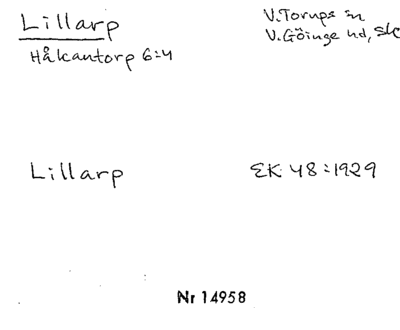 Lillarp
V. Torups sn
Håkantorp 6:4
V. Göinge hd, Sk
Lillarp
EK 48:1929
Nr 14958